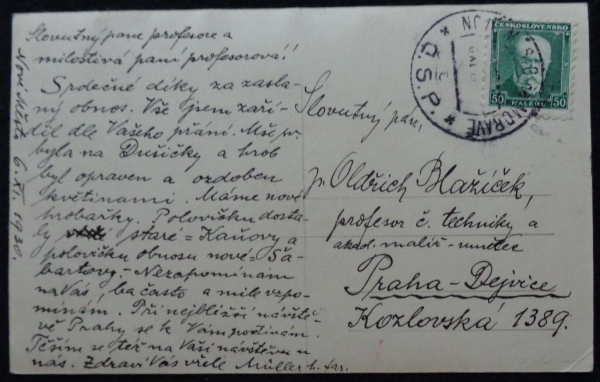 Slovutný pane profesore a
milostivá paní profesorová!
Srdečné díky za zasla-
ný obnos. Vše jsem zaří-
dil dle Vašeho přání. Mše sv.
byla na Dušičky a hrob
byl opraven a ozdoben
květinami. Máme nové
hrobařky. Polovičku dosta-
ly staré = Kaňovy a
polovičku obnosu nové = Ša-
bartovy. Nezapomínám
na Vás, ba často a mile vzpo-
mínám. Při nejbližší návště-
vě Prahy se k Vám podívám.
Těším se též na Vaši návštěvu u
nás. Zdraví Vás vřele Müller
Nové Město 6. XI. 1930.
Slovutný pan,
p. Oldřich Blažíček,
profesor č. techniky a
akad. malíř - umělec
Praha - Dejvice
Kozlovská 1389.
ČESKOSLOVENSKO
50 HALÉŘŮ 50
MORAVĚ